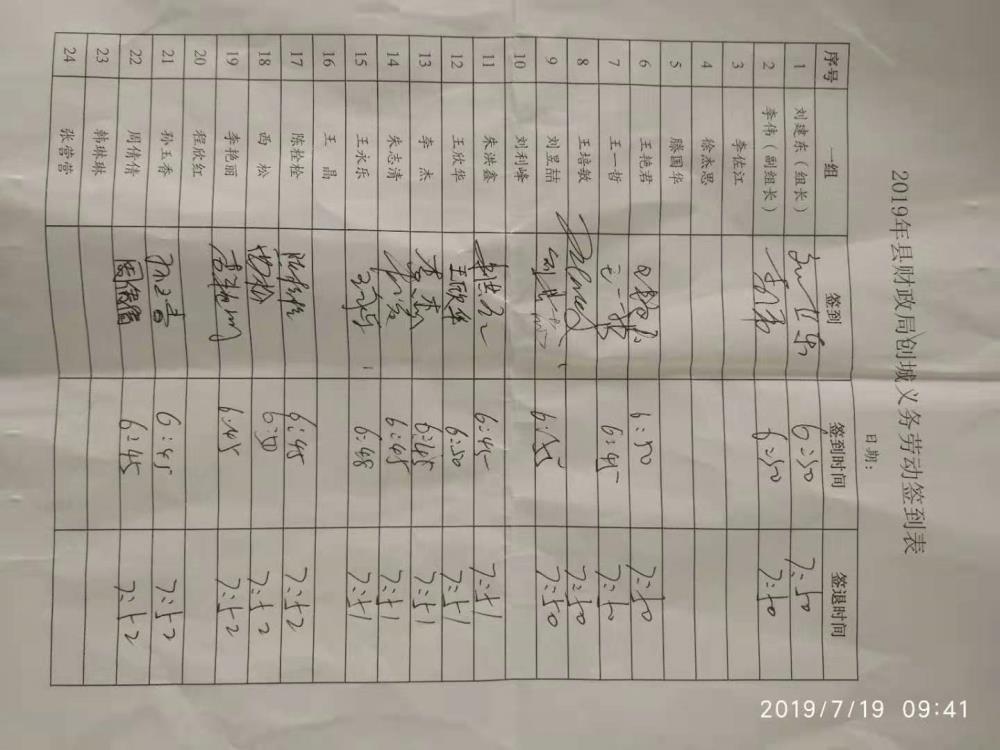 2019年县财政局创城义务劳动签到表
日期：
序号 一组 签到 签到时间 签退时间
1 刘建东（组长） 6:50 7:50
2 李伟（副组长） 李伟 6:50 7:50
3 李佐江
4 徐杰思
5 滕国华
6 王艳君 6:50 7:50
7 王一哲 王一哲 6:45 7:50
8 王培敏 7:50
9 刘昱喆 6:55 7:50
10 刘利峰
11 朱洪鑫 朱洪鑫 6:45 7:51
12 王欣华 王欣华 6:50 7:51
13 李杰 李杰 6:45 7:51
14 朱志清 6:45 7:51
15 王永乐 6:48 7:51
16 王晶
17 陈栓栓 陈栓栓 6:45 7:52
18 西松 西松 6:50 7:52
19 李艳丽 李艳丽 6:45 7:52
20 程欣红
21 孙玉香 孙玉香 6:45 7:52
22 周倩倩 周倩倩 6:45 7:52
23 韩琳琳
24 张营营
2019/7/19 09:41